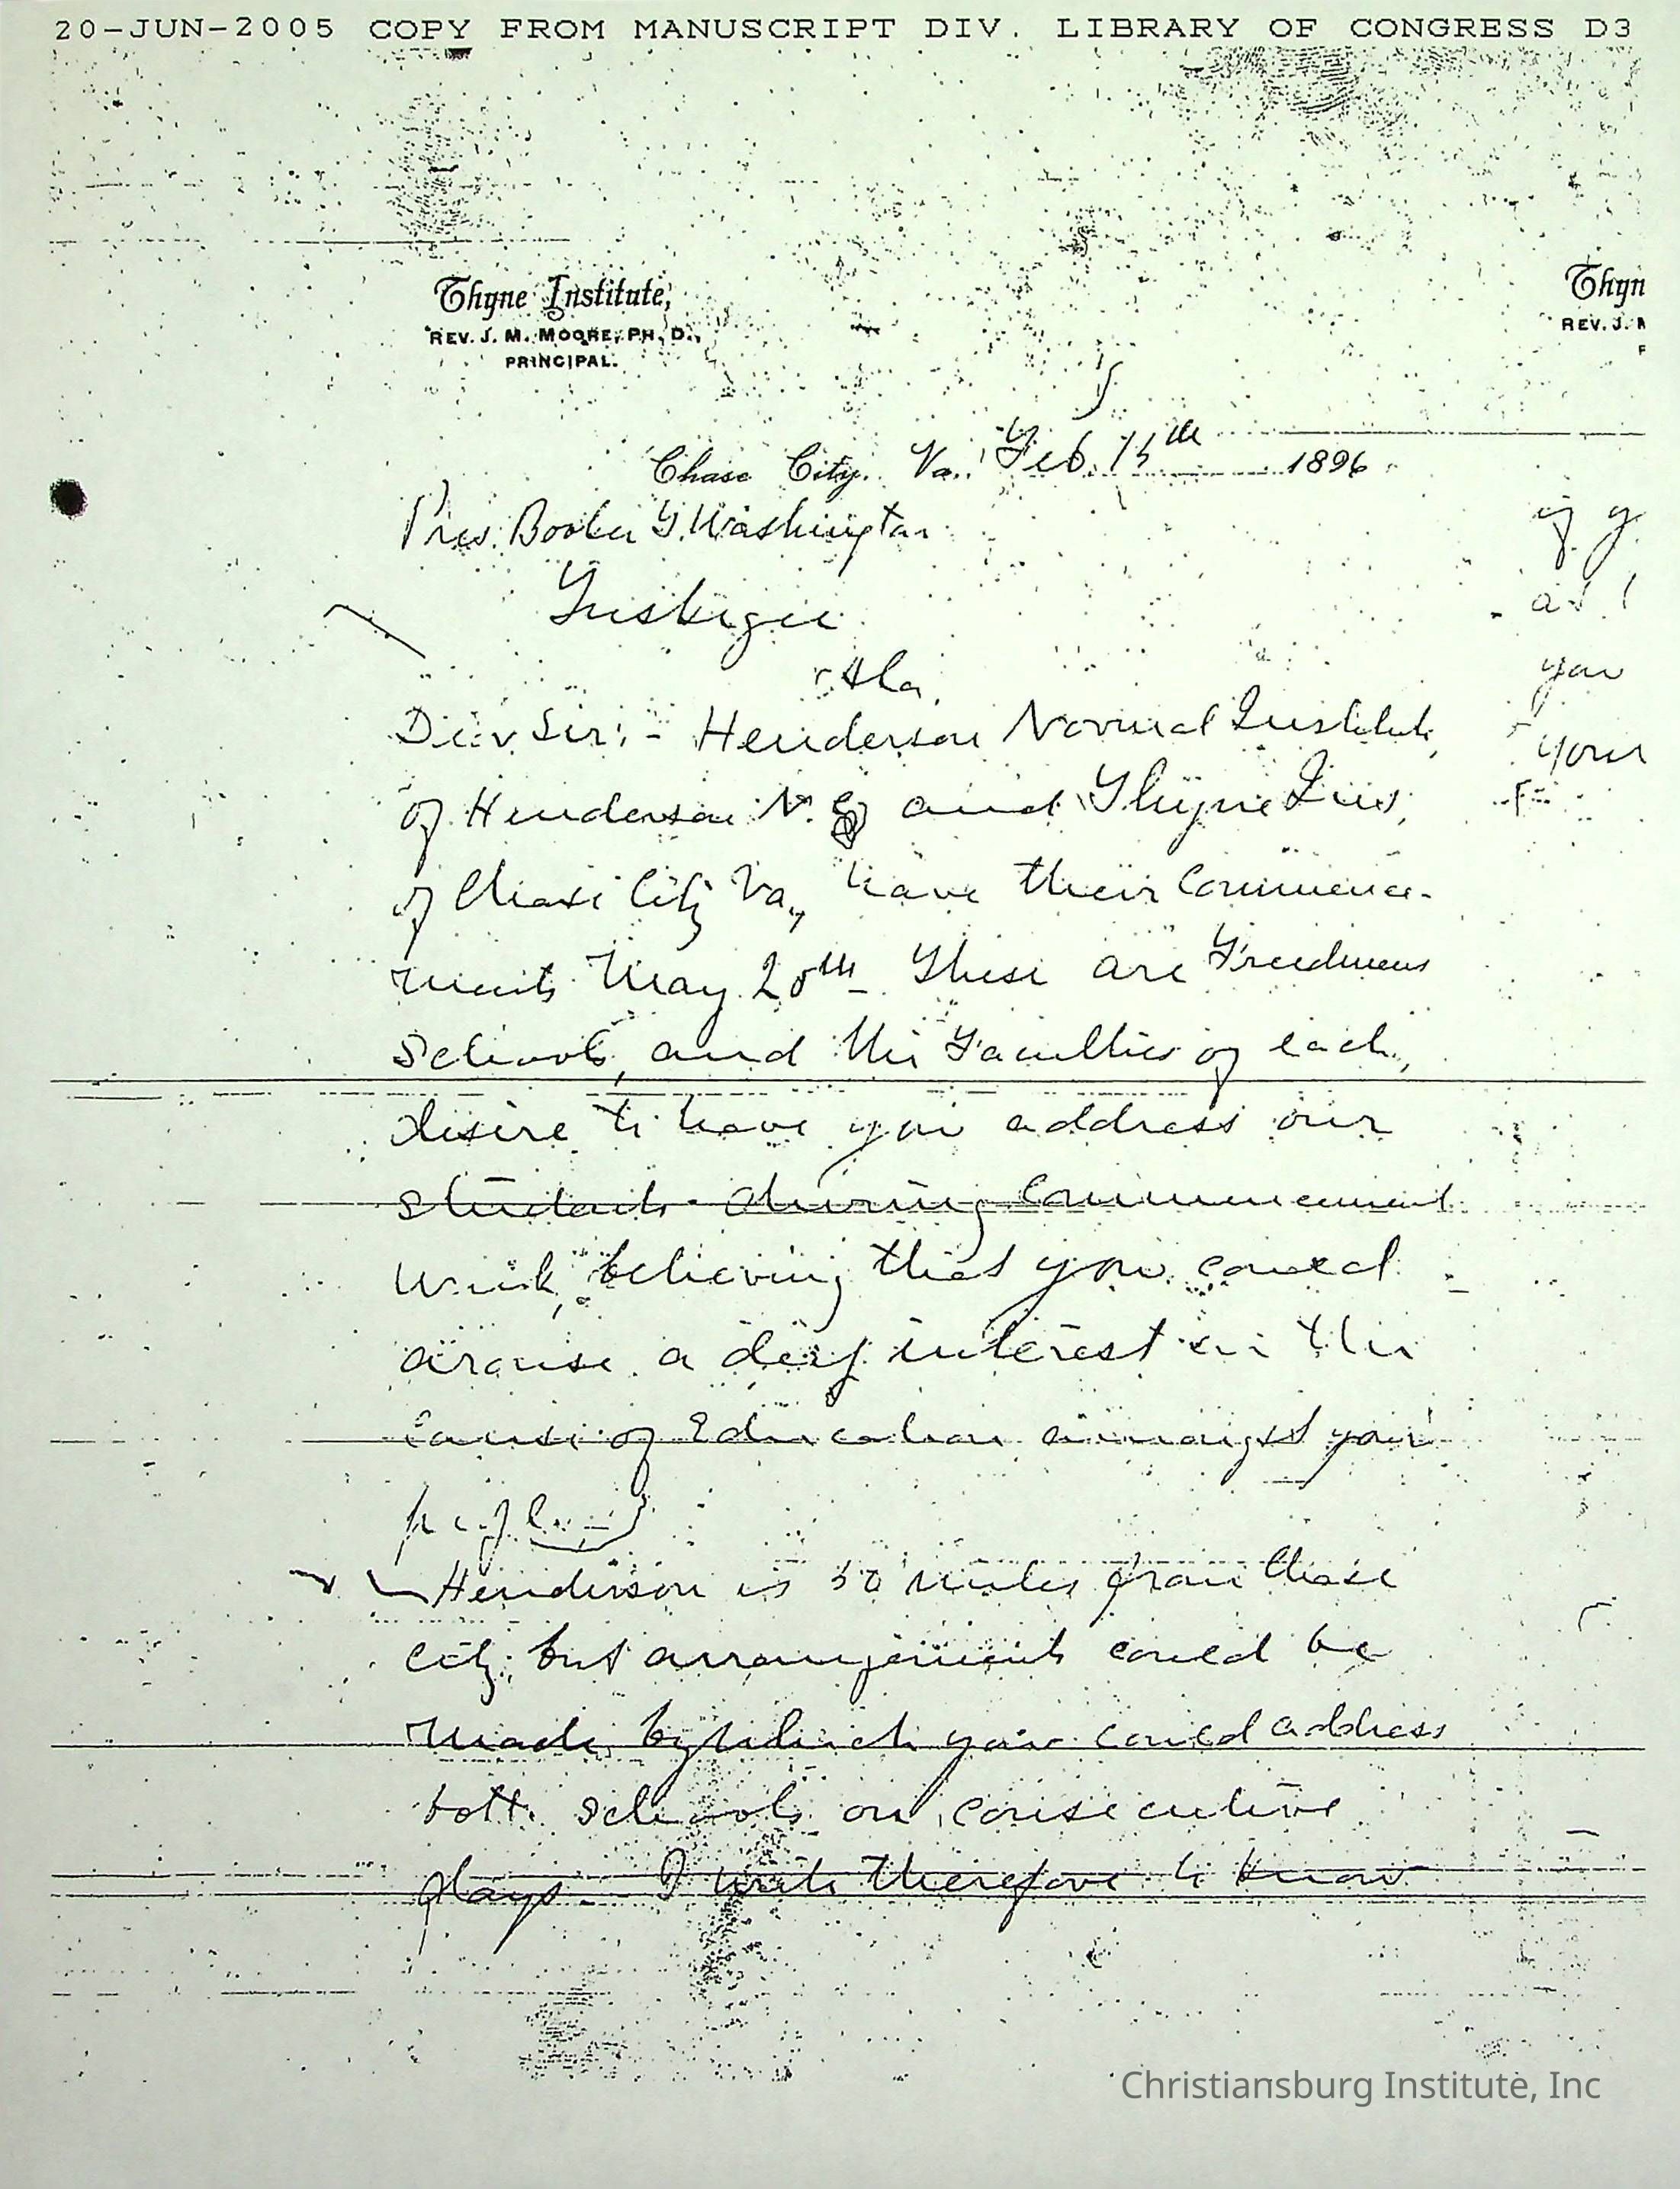 20-JUN-2005 COPY FROM MANUSCRIPT DIV. LIBRARY OF CONGRESS D3
Thyne Institute,
REV. J. M. MOORE, PH. D.,
PRINCIPAL.
Thyn
REV. J. M
P
Chase City, Va., Feb. 15th 1896
Pres. Booker T. Washington
Tuskegee
Ala.
Dear Sir:- Henderson Normal Institute,
of Henderson N.C. and Thyne Ins,
of Chase City Va, have their Commence-
ments May 20th. These are Freedmens
Schools, and the Faculties of each,
desire to have you address our
students during Commencement
week, believing that you could
arouse a deep interest in the
cause of Education amongst your
people.
Henderson is 50 miles from Chase
City; but arrangements could be
made, by which you could address
both schools on consecutive
days. I write therefore to know
you
your
Christiansburg Institute, Inc